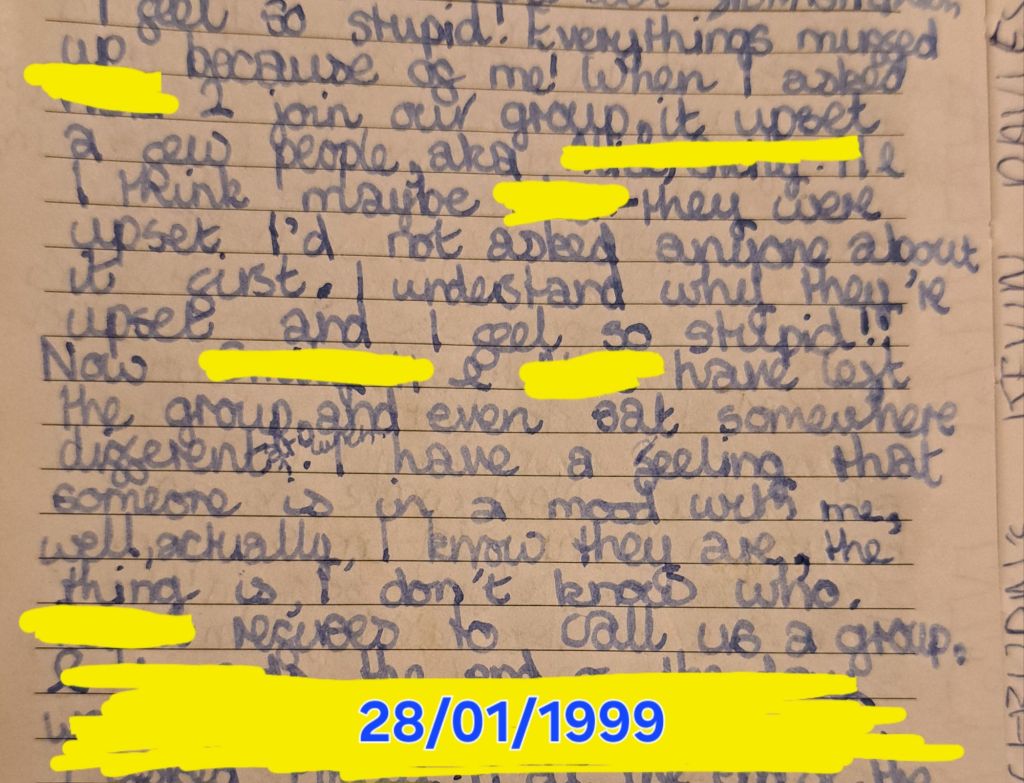 I feel so stupid! Everythings mussed
up because of me! When I asked
2 join our group, it upset
a few people, aka
I think maybe they were
upset I'd not asked anyone about
it first. I understand why they're
upset and I feel so stupid!!
Now & have left
the group, and even sat somewhere
different. I have a feeling that
someone is in a mood with me,
well, actually, I know they are, the
thing is, I don't know who.
refuses to call us a group.
28/01/1999
KEVIN DAVIES